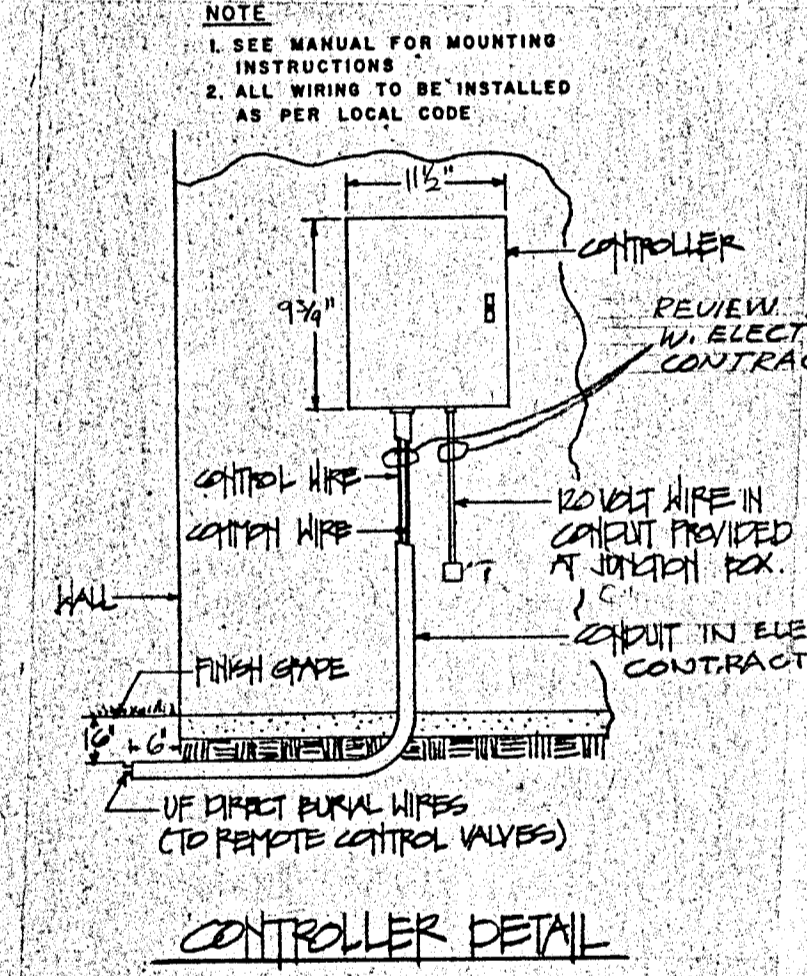 NOTE
1. SEE MANUAL FOR MOUNTING
INSTRUCTIONS
2. ALL WIRING TO BE INSTALLED
AS PER LOCAL CODE
11½"
CONTROLLER
9¾"
REVIEW
W. ELECT
CONTRAC
CONTROL WIRE
COMMON WIRE
120 VOLT WIRE IN
CONDUIT PROVIDED
AT JUNCTION BOX.
WALL
CONDUIT IN ELE
CONTRACT
FINISH GRADE
6"
UF DIRECT BURIAL WIRES
(TO REMOTE CONTROL VALVES)
CONTROLLER DETAIL